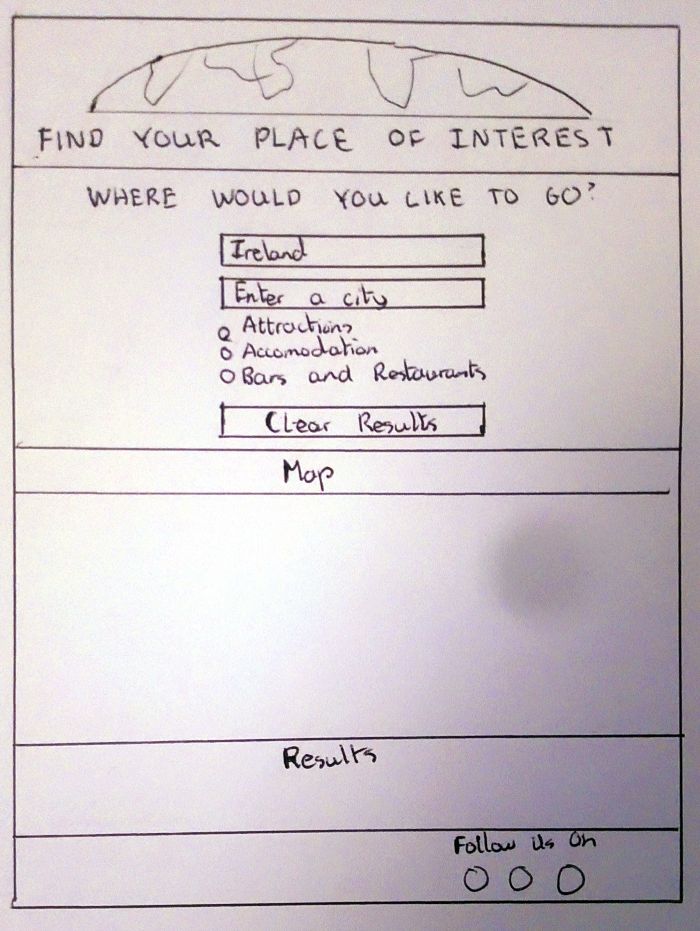 FIND YOUR PLACE OF INTEREST
WHERE WOULD YOU LIKE TO GO?
Ireland
Enter a city
Attractions
Accomodation
Bars and Restaurants
Clear Results
Map
Results
Follow Us On